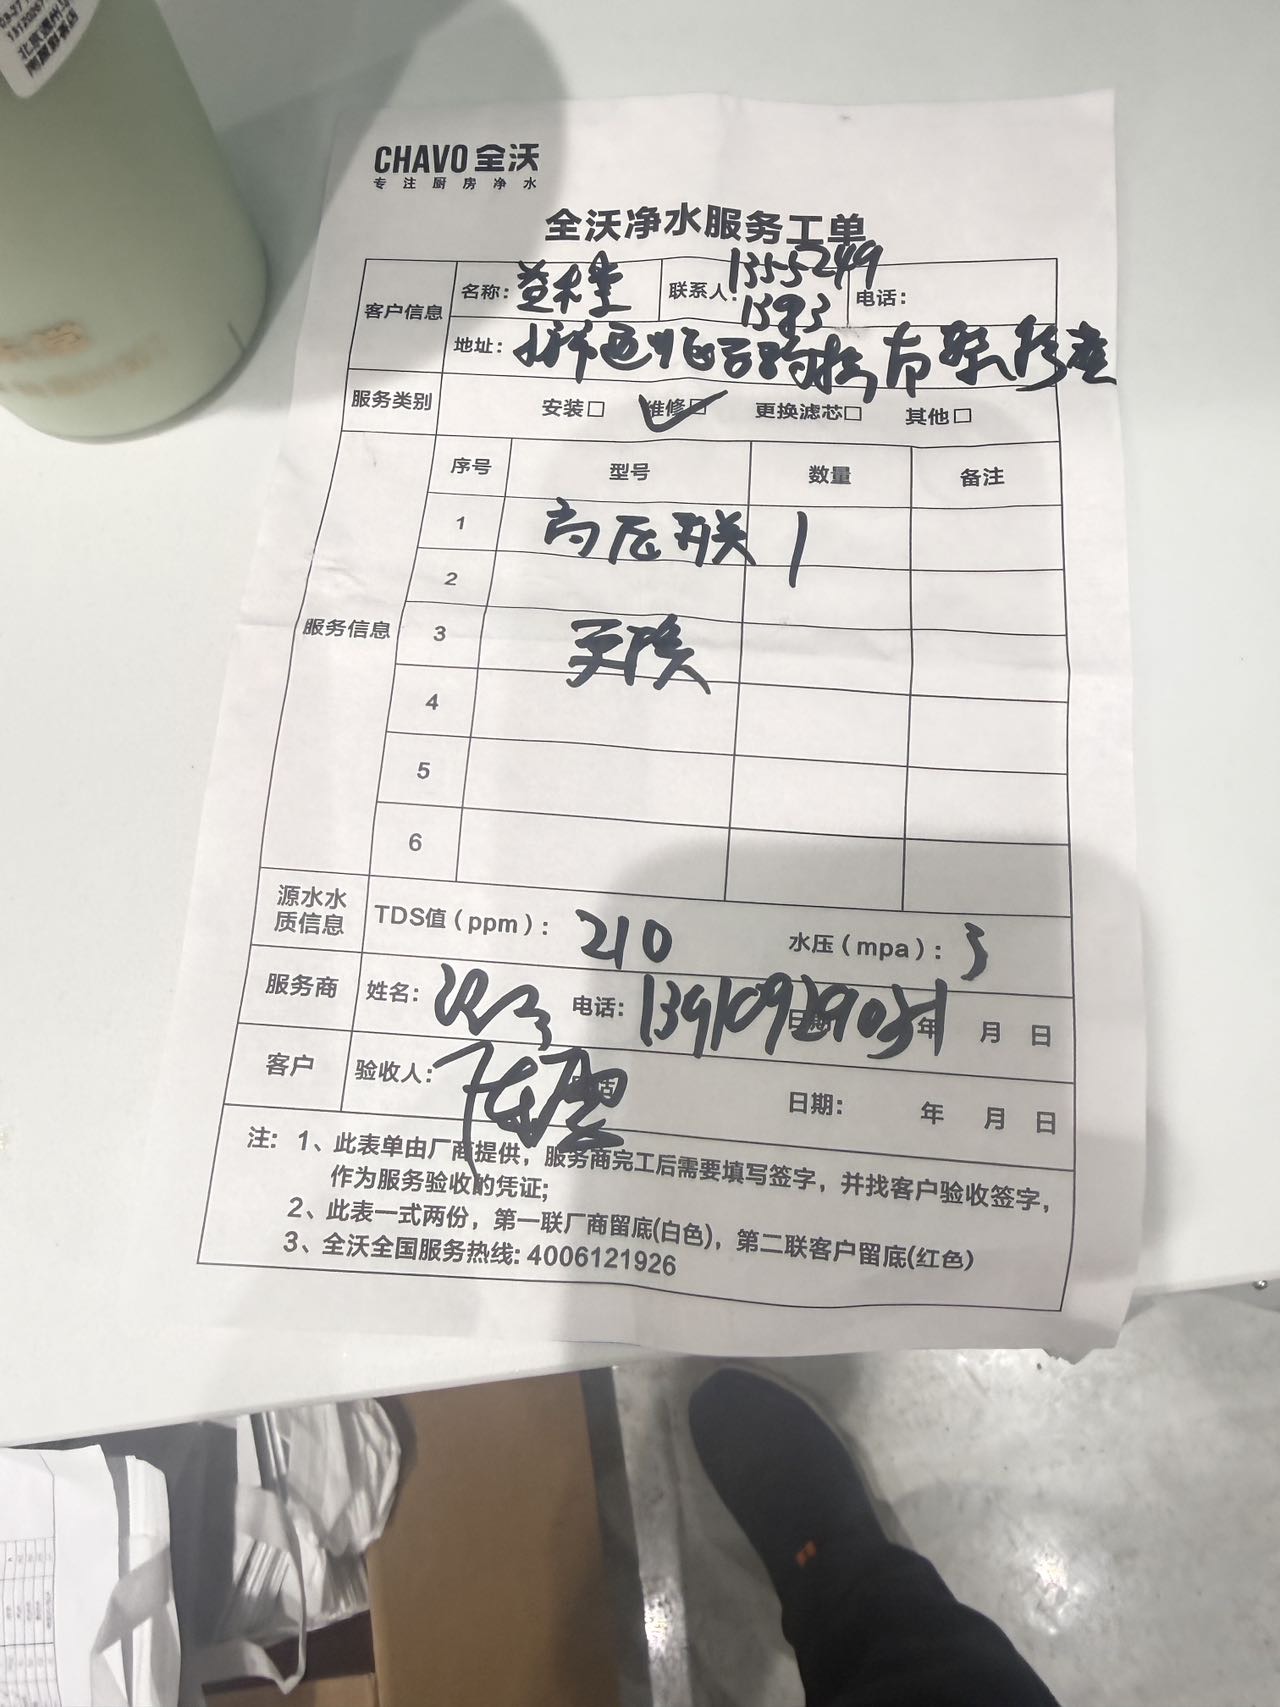 CHAVO 全沃
专注厨房净水
全沃净水服务工单
客户信息 名称: 益禾堂 联系人: 1355249 1393 电话:
地址:
服务类别 安装□ 维修☑ 更换滤芯□ 其他□
服务信息 序号 型号 数量 备注
1 高压开关 1
2
3 更换
4
5
6
源水水质信息 TDS值（ppm）: 210 水压（mpa）: 3
服务商 姓名: 电话: 13910929031 日期 年 月 日
客户 验收人: 日期: 年 月 日
注: 1、此表单由厂商提供，服务商完工后需要填写签字，并找客户验收签字，
作为服务验收的凭证;
2、此表一式两份，第一联厂商留底(白色)，第二联客户留底(红色)
3、全沃全国服务热线: 4006121926